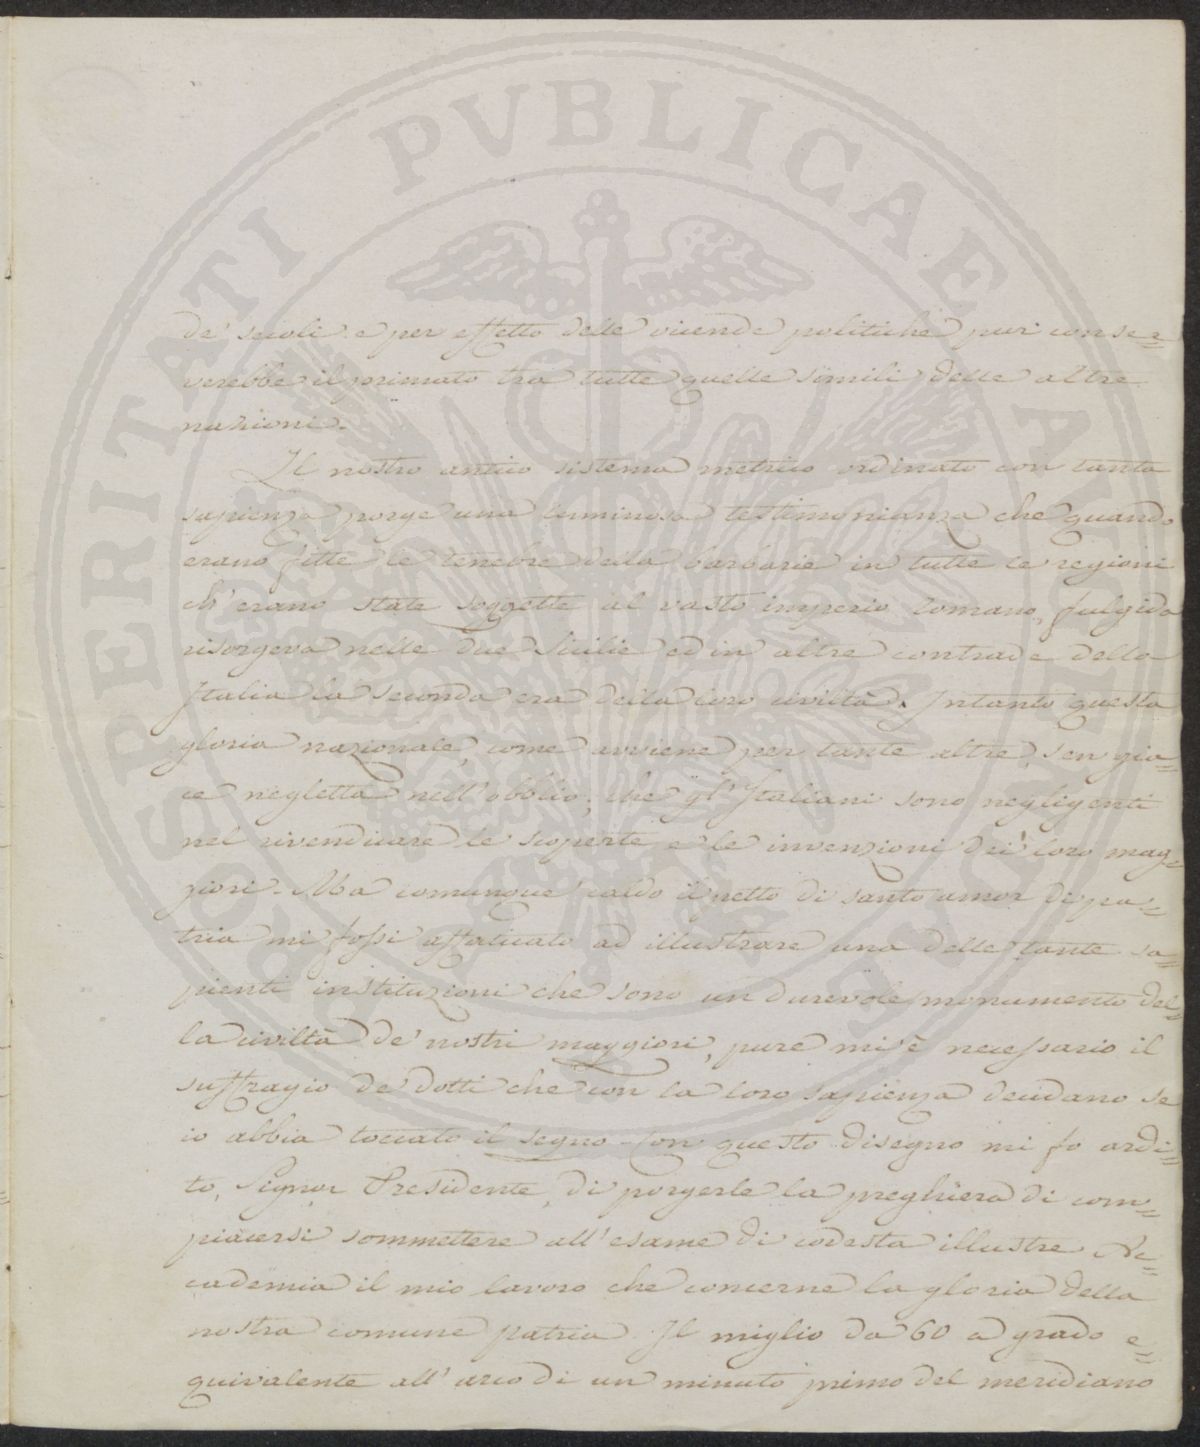 PROSPERITATI PVBLICAE AVGENDAE
de' secoli e per effetto delle vicende politiche pur conser=
verebbe il primato tra tutte quelle simili delle altre
nazioni.
Il nostro antico sistema metrico ordinato con tanta
sapienza porge una luminosa testimonianza che quando
erano fitte le tenebre della barbarie in tutte le regioni
ch'erano state soggette al vasto imperio romano, fulgida
risorgeva nelle due Sicilie ed in altre contrade della
Italia la seconda era della loro civiltà. Intanto questa
gloria nazionale, come avviene per tante altre, sen gia=
ce negletta nell'obblio; chè gl'Italiani sono negligenti
nel rivendicare le scoperte e le invenzioni dei loro mag=
giori. Ma comunque caldo il petto di santo amor di pa=
tria mi fossi affaticato ad illustrare una delle tante sa=
pienti instituzioni che sono un durevole monumento del=
la civiltà de' nostri maggiori, pure mi è necessario il
suffragio de' dotti che con la loro sapienza decidano se
io abbia toccato il segno. Con questo disegno mi fo ardi=
to, Signor Presidente, di porgerle la preghiera di com=
piacersi sommettere all'esame di codesta illustre Ac=
cademia il mio lavoro che concerne la gloria della
nostra comune patria. Il miglio da 60 a grado e=
quivalente all'arco di un minuto primo del meridiano